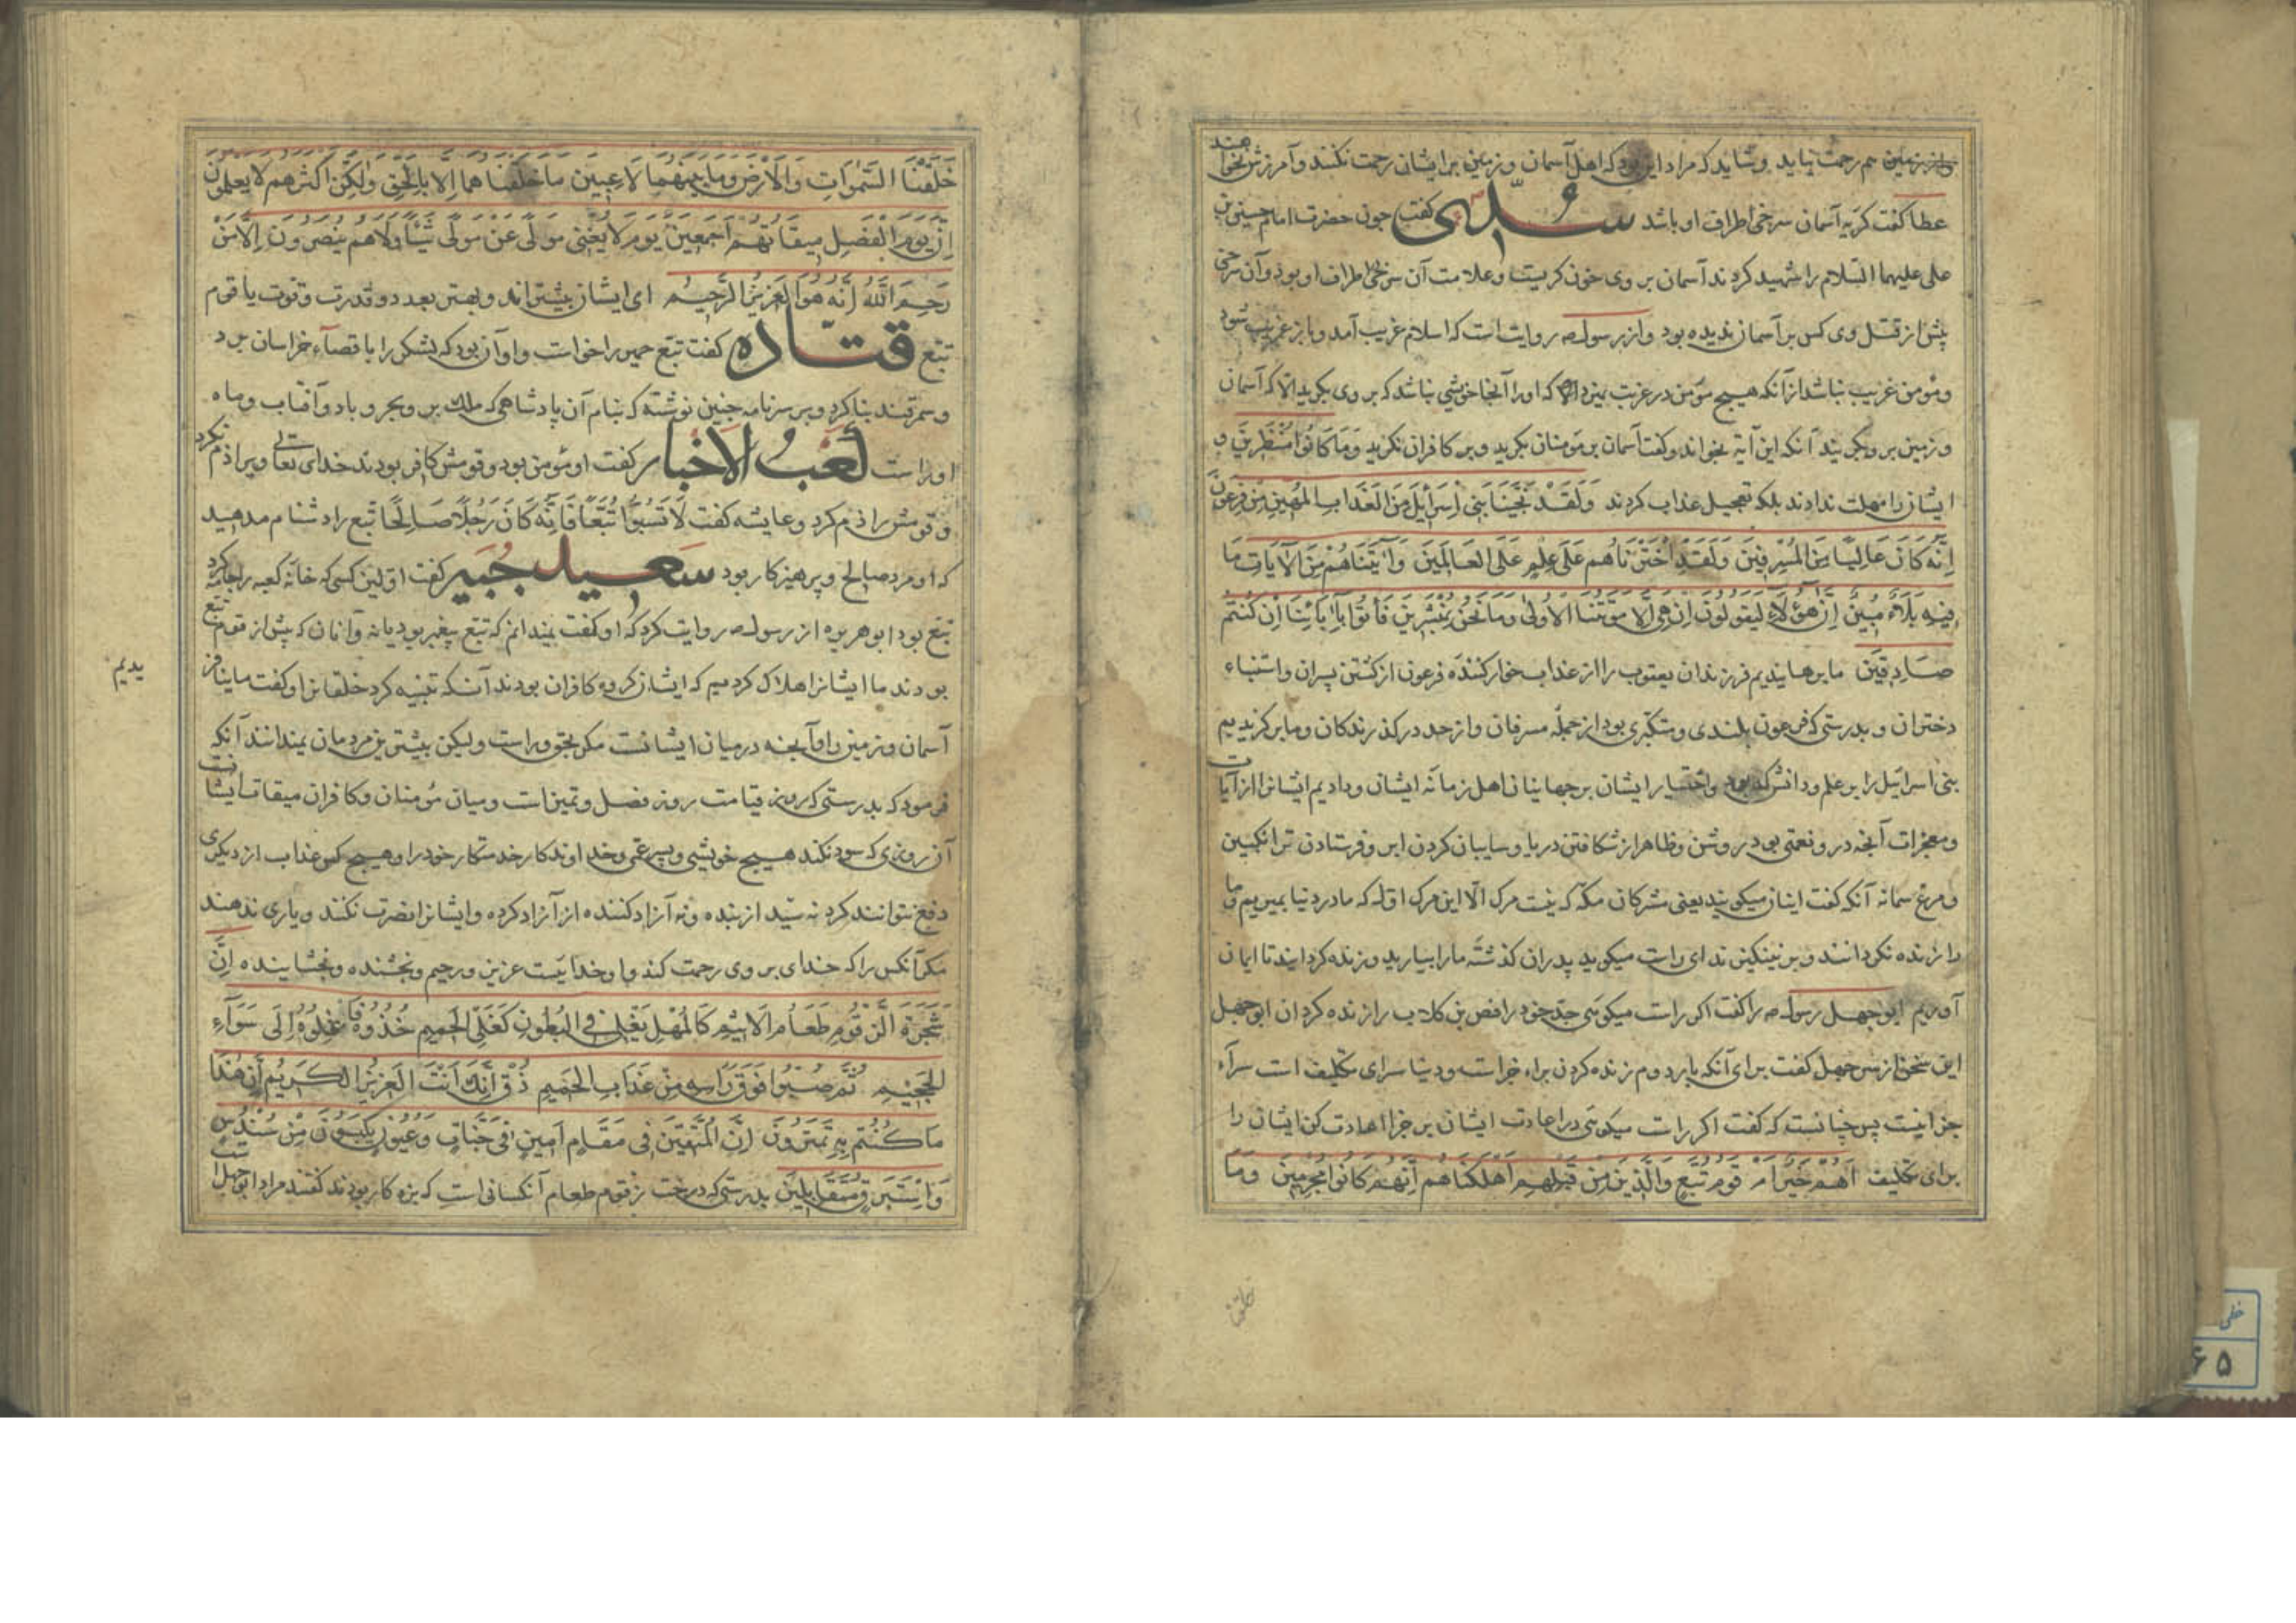 و از زمین هم رحمت نیاید و شاید که مراد این بود که اهل آسمان و زمین برایشانی رحمت نکنند و آمرزش نخواهند
عطا گفت گریه آسمان سرخی اطراف او باشد سدی گفت چون حضرت امام حسین بن
علی علیهما السلام را شهید کردند آسمان بر وی خون گریست و علامت آن سرخی اطراف او بود و آن سرخی
پیش از قتل وی کس بر آسمان ندیده بود و از رسول ص روایت است که اسلام غریب آمد و باز غریب شود
و مؤمن غریب نباشد از آنکه هیچ مؤمن در غربت نمیرد که او را آنجا خویشی نباشد که بر وی بگرید الا که آسمان
و زمین بر وی بگریند آنکه این آیة بخواند و گفت آسمان بر مؤمنان بگرید و بر کافران نگرید وَمَا كَانُوا مُنْظَرِينَ و
ایشان را مهلت ندادند بلکه تعجیل عذاب کردند وَلَقَدْ نَجَّيْنَا بَنِي اِسْرَآئِيلَ مِنَ الْعَذَابِ الْمُهِينِ مِنْ فِرْعَوْنَ
اِنَّهُ كَانَ عَالِيًا مِنَ الْمُسْرِفِينَ وَلَقَدِ اخْتَرْنَاهُمْ عَلَى عِلْمٍ عَلَى الْعَالَمِينَ وَاٰتَيْنَاهُمْ مِنَ الْاٰيَاتِ مَا
فِيهِ بَلَآءٌ مُبِينٌ اِنَّ هٰؤُلَآءِ لَيَقُولُونَ اِنْ هِيَ اِلَّا مَوْتَتُنَا الْاُولٰى وَمَا نَحْنُ بِمُنْشَرِينَ فَأْتُوا بِاٰبَآئِنَا اِنْ كُنْتُمْ
صَادِقِينَ ما برهانیدیم فرزندان یعقوب را از عذاب خوار کننده فرعون از کشتن پسران و استنباء
دختران و بدرستی که فرعون بلندی و متکبری بود از جمله مسرفان و از حد درگذرندگان و ما برگزیدیم
بنی اسرائیل را بر علم و دانش که بود و اختیار ایشان بر جهانیان اهل زمانه ایشان و دادیم ایشانرا از آیات
و معجزات آنچه در و نعمتی بود روشن و ظاهر از شکافتن دریا و سایبان کردن ابر و فرستادن ترانگبین
و مرغ سمانه آنکه گفت اینان میگویند یعنی مشرکان مکه که نیست مرگ الا این مرگ اول که ما در دنیا بمیریم و ما
را زنده نگردانند و بر نینگیزند ای راست میگوید پدران گذشته ما را بیارید و زنده گردانید تا ایمان
آوریم ابو جهل رسول ص را گفت اگر راست میگوئی جد خود را قصی بن کلاب را زنده گردان ابو جهل
این سخن از سر جهل گفت برای آنکه بار دوم زنده کردن براء جزاست و دنیا سرای تکلیف است سرآء
جزا نیست پس چنانست که گفت اگر راست میگوئی در اعادت ایشان بر جزا اعادت کن ایشان را
برای تکلیف اَهُمْ خَيْرٌ اَمْ قَوْمُ تُبَّعٍ وَالَّذِينَ مِنْ قَبْلِهِمْ اَهْلَكْنَاهُمْ اِنَّهُمْ كَانُوا مُجْرِمِينَ وَمَا
خطی
۶۵
خَلَقْنَا السَّمٰوَاتِ وَالْاَرْضَ وَمَا بَيْنَهُمَا لَاعِبِينَ مَا خَلَقْنَاهُمَا اِلَّا بِالْحَقِّ وَلٰكِنَّ اَكْثَرَهُمْ لَا يَعْلَمُونَ
اِنَّ يَوْمَ الْفَصْلِ مِيقَاتُهُمْ اَجْمَعِينَ يَوْمَ لَا يُغْنِي مَوْلًى عَنْ مَوْلًى شَيْئًا وَلَاهُمْ يُنْصَرُونَ اِلَّا مَنْ
رَحِمَ اللّٰهُ اِنَّهُ هُوَ الْعَزِيزُ الرَّحِيمُ ای ایشان بیشتراند و بهتر بعدد و قدرت و قوت یا قوم
تبع قتاده گفت تبع حمیر را خواست و او آن بود که لشکر را با قصآء خراسان برد
و سمرقند بنا کرد و بر سر نامه چنین نوشته که بنام آن پادشاهی که ملک بر و بحر و باد و آفتاب و ماه
او راست کعب الاخبار گفت او مؤمن بود و قومش کافر بودند خدای تعالی ویرا ذم نکرد
و قومش را ذم کرد و عایشه گفت لَا تَسُبُّوا تُبَّعًا فَاِنَّهُ كَانَ رَجُلًا صَالِحًا تبع را دشنام مدهید
که او مرد صالح و پرهیزکار بود سعید جبیر گفت اولین کسی که خانه کعبه را جامه کرد
تبع بود ابو هریره از رسول ص روایت کرد که او گفت نمیدانم که تبع پیغمبر بود یا نه و آنان که پیش از قوم تبع
بودند ما ایشانرا هلاک کردیم که ایشان گروه کافران بودند آنکه تنبیه کرد خلقانرا و گفت ما نیافر
یدیم
آسمان و زمین را و آنچه در میان ایشانست مگر بحق و راست ولیکن بیشترین مردمان نمیدانند آنکه
فرمود که بدرستی که روز قیامت روز فصل و تمیز است و میان مؤمنان و کافران میقات ایشانست
آن روزی که سود نکند هیچ خویشی و پسر عمی و خداوندکار خدمتکار خود را و هیچ کس عذاب از دیگری
دفع نتوانند کرد نه سید از بنده و نه آزاد کننده از آزاد کرده و ایشانرا نصرت نکنند و یاری ندهند
مگر آنکس را که خدای بر وی رحمت کند و او خدائیست عزیز و رحیم و بخشنده و بخشاینده اِنَّ
شَجَرَةَ الزَّقُّومِ طَعَامُ الْاَثِيمِ كَالْمُهْلِ يَغْلِي فِي الْبُطُونِ كَغَلْيِ الْحَمِيمِ خُذُوهُ فَاعْتِلُوهُ اِلٰى سَوَآءِ
الْجَحِيمِ ثُمَّ صُبُّوا فَوْقَ رَاْسِهِ مِنْ عَذَابِ الْحَمِيمِ ذُقْ اِنَّكَ اَنْتَ الْعَزِيزُ الْكَرِيمُ اِنَّ هٰذَا
مَا كُنْتُمْ بِهِ تَمْتَرُونَ اِنَّ الْمُتَّقِينَ فِي مَقَامٍ اَمِينٍ فِي جَنَّاتٍ وَعُيُونٍ يَلْبَسُونَ مِنْ سُنْدُسٍ
وَاِسْتَبْرَقٍ مُتَقَابِلِينَ بدرستی که درخت زقوم طعام آنکسانی است که بزه کار بودند گفتند مراد ابو جهل است